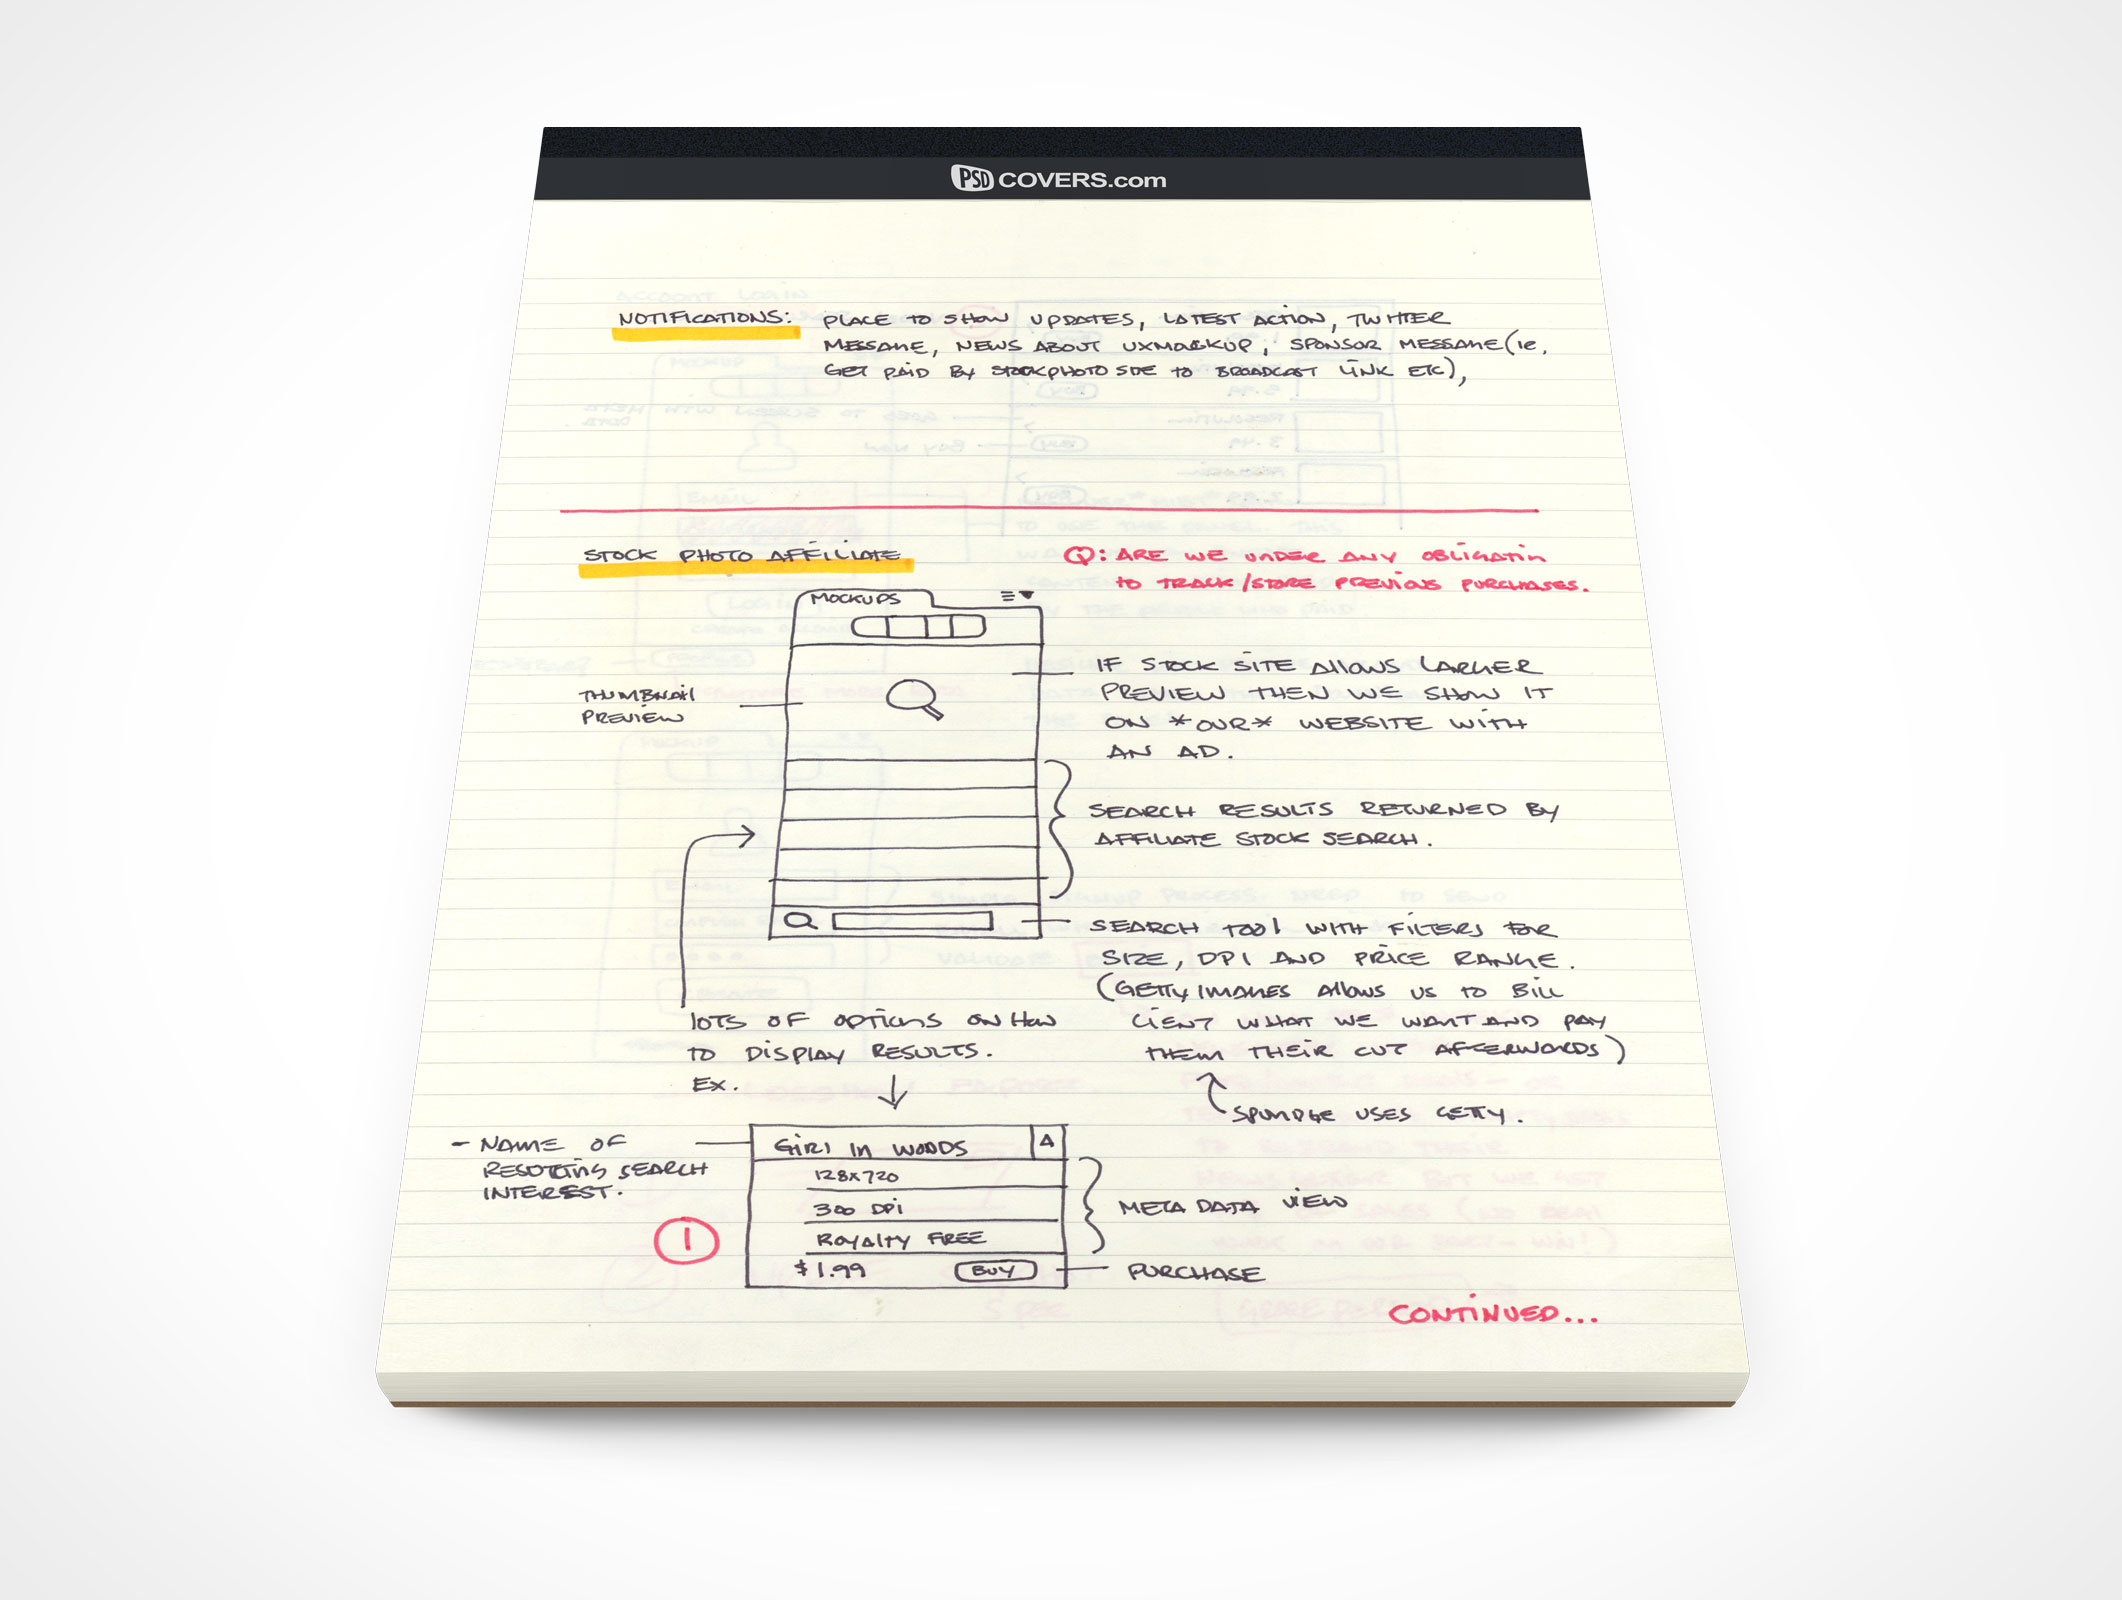 PSD COVERS.com
NOTIFICATIONS: PLACE TO SHOW UPDATES, LATEST ACTION, TWITTER
MESSAGE, NEWS ABOUT UXMOCKUP, SPONSOR MESSAGE (IE.
GET PAID BY STOCKPHOTO SITE TO BROADCAST LINK ETC),
STOCK PHOTO AFFILIATE
Q: ARE WE UNDER ANY OBLIGATIN
TO TRACK/STORE PREVIOUS PURCHASES.
MOCKUPS
THUMBNAIL
PREVIEW
IF STOCK SITE ALLOWS LARGER
PREVIEW THEN WE SHOW IT
ON *OUR* WEBSITE WITH
AN AD.
SEARCH RESULTS RETURNED BY
AFFILIATE STOCK SEARCH.
SEARCH TOOL WITH FILTERS FOR
SIZE, DPI AND PRICE RANGE.
(GETTY IMAGES ALLOWS US TO BILL
CIENT WHAT WE WANT AND PAY
THEM THEIR CUT AFTERWORDS)
SPUNDGE USES GETTY.
LOTS OF OPTIONS ON HOW
TO DISPLAY RESULTS.
EX.
- NAME OF
SEARCH
INTEREST.
GIRL IN WOODS
128x720
300 DPI
ROYALTY FREE
$1.99 BUY
META DATA VIEW
PURCHASE
1
CONTINUED...